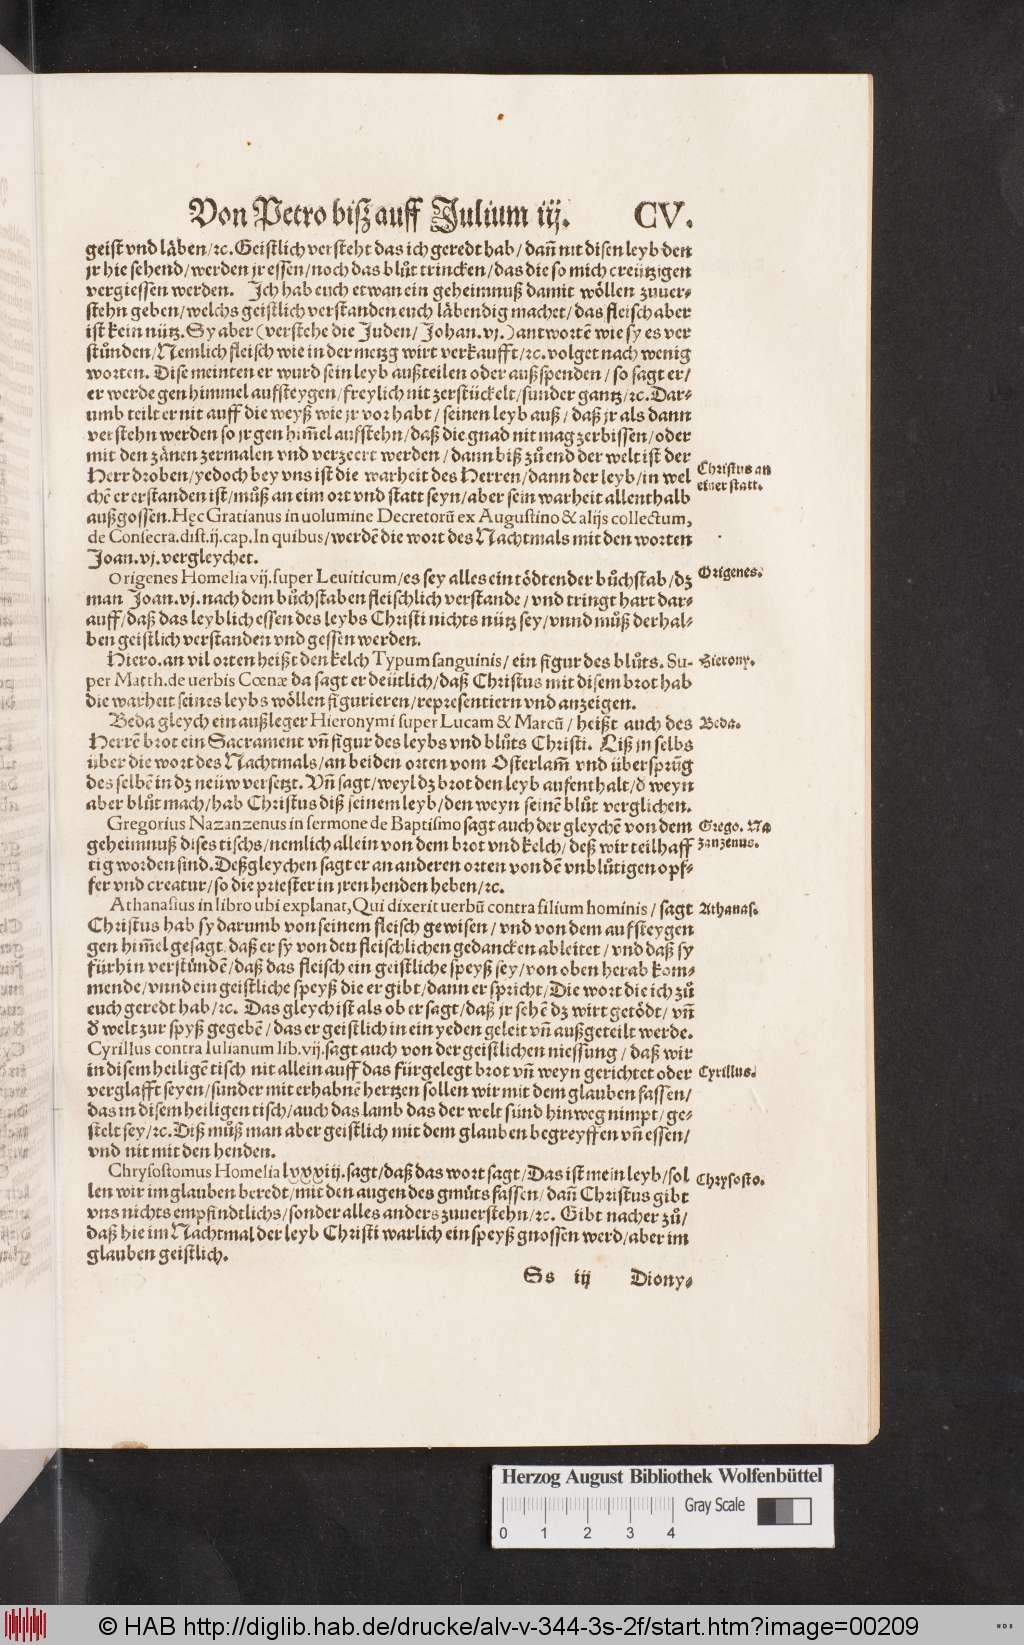 Von Petro biß auff Julium iij. CV.
geist vnd läben/ꝛc. Geistlich versteht das ich geredt hab/ dañ nit disen leyb den
jr hie sehend/werden jr essen/noch das blůt trincken/das die so mich creützigen
vergiessen werden. Ich hab euch etwan ein geheimnuß damit wöllen zuuer⸗
stehn geben/welchs geistlich verstanden euch läbendig machet/das fleisch aber
ist kein nütz. Sy aber (verstehe die Juden/ Johan. vj.) antwortẽ wie sy es ver
stůnden/Nemlich fleisch wie in der metzg wirt verkaufft/ꝛc. volget nach wenig
worten. Dise meinten er wurd sein leyb außteilen oder außspenden/ so sagt er/
er werde gen himmel aufsteygen/freylich nit zerstückelt/sunder gantz/ꝛc. Dar⸗
umb teilt er nit auff die weyß wie jr vor habt/ seinen leyb auß/ daß jr als dann
verstehn werden so jr gen him̃el aufstehn/daß die gnad nit mag zerbissen/oder
mit den zänen zermalen vnd verzeert werden/ dann biß zů end der welt ist der
Herr droben/yedoch bey vns ist die warheit des Herren/dann der leyb/in wel
chẽ er erstanden ist/můß an eim ort vnd statt seyn/aber sein warheit allenthalb
Christus an
einer statt.
außgossen. Hęc Gratianus in uolumine Decretorũ ex Augustino & alijs collectum,
de Consecra.dist.ij.cap. In quibus/werdẽ die wort des Nachtmals mit den worten
Joan. vj. vergleychet.
Origenes Homelia vij. super Leuiticum/es sey alles ein tödtender bůchstab/dz
Origenes.
man Joan. vj. nach dem bůchstaben fleischlich verstande/ vnd tringt hart dar⸗
auff/daß das leyblich essen des leybs Christi nichts nütz sey/vnnd můß derhal⸗
ben geistlich verstanden vnd gessen werden.
Hiero. an vil orten heißt den kelch Typum sanguinis/ ein figur des blůts. Su-
Hierony.
per Matth. de uerbis Cœnæ da sagt er deütlich/daß Christus mit disem brot hab
die warheit seines leybs wöllen figurieren/representiern vnd anzeigen.
Beda gleych ein außleger Hieronymi super Lucam & Marcũ/ heißt auch des
Beda.
Herrẽ brot ein Sacrament vñ figur des leybs vnd blůts Christi. Liß jn selbs
über die wort des Nachtmals/an beiden orten vom Osterlam̃ vnd übersprũg
des selbẽ in dz neüw versetzt. Vñ sagt/weyl dz brot den leyb aufenthalt/ď weyn
aber blůt mach/hab Christus diß seinem leyb/den weyn seinẽ blůt verglichen.
Gregorius Nazanzenus in sermone de Baptismo sagt auch der gleychẽ von dem
Grego. Na
zanzenus.
geheimnuß dises tischs/nemlich allein von dem brot vnd kelch/ deß wir teilhaff
tig worden sind. Deßgleychen sagt er an anderen orten von dẽ vnblůtigen opf⸗
fer vnd creatur/so die priester in jren henden heben/ꝛc.
Athanasius in libro ubi explanat, Qui dixerit uerbũ contra filium hominis/ sagt
Athanas.
Christus hab sy darumb von seinem fleisch gewisen/ vnd von dem aufsteygen
gen him̃el gesagt daß er sy von den fleischlichen gedancken ableitet/ vnd daß sy
fürhin verstůndẽ/daß das fleisch ein geistliche speyß sey/von oben herab kom⸗
mende/vnnd ein geistliche speyß die er gibt/dann er spricht/Die wort die ich zů
euch geredt hab/ꝛc. Das gleych ist als ob er sagt/daß jr sehẽ dz wirt getödt/ vñ
ď welt zur spyß gegebẽ/das er geistlich in ein yeden geleit vñ außgeteilt werde.
Cyrillus contra Iulianum lib. vij. sagt auch von der geistlichen niessung/ daß wir
in disem heiligẽ tisch nit allein auff das fürgelegt brot vñ weyn gerichtet oder
Cyrillus.
verglafft seyen/sunder mit erhabnẽ hertzen sollen wir mit dem glauben fassen/
das in disem heiligen tisch/auch das lamb das der welt sünd hinweg nimpt/ge⸗
stelt sey/ꝛc. Diß můß man aber geistlich mit dem glauben begreyffen vñ essen/
vnd nit mit den henden.
Chrysostomus Homelia lxxxiij. sagt/daß das wort sagt/Das ist mein leyb/sol
Chrysosto.
len wir im glauben beredt/mit den augen des gmůts fassen/dañ Christus gibt
vns nichts empfindtlichs/sonder alles anders zuuerstehn/ꝛc. Gibt nacher zů/
daß hie im Nachtmal der leyb Christi warlich ein speyß gnossen werd/aber im
glauben geistlich.
Ss iij Diony⸗
Herzog August Bibliothek Wolfenbüttel
Gray Scale
0 1 2 3 4
© HAB http://diglib.hab.de/drucke/alv-v-344-3s-2f/start.htm?image=00209